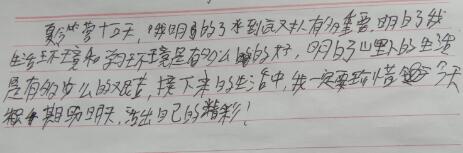 夏令营十五天,我明白的了水到底对人有多重要,明白了我
生活环境和学习环境是有多么的好,明白了山里人的生活
是有多么的艰苦,接下来的生活中,我一定要珍惜今天
期盼明天,活出自己的精彩!